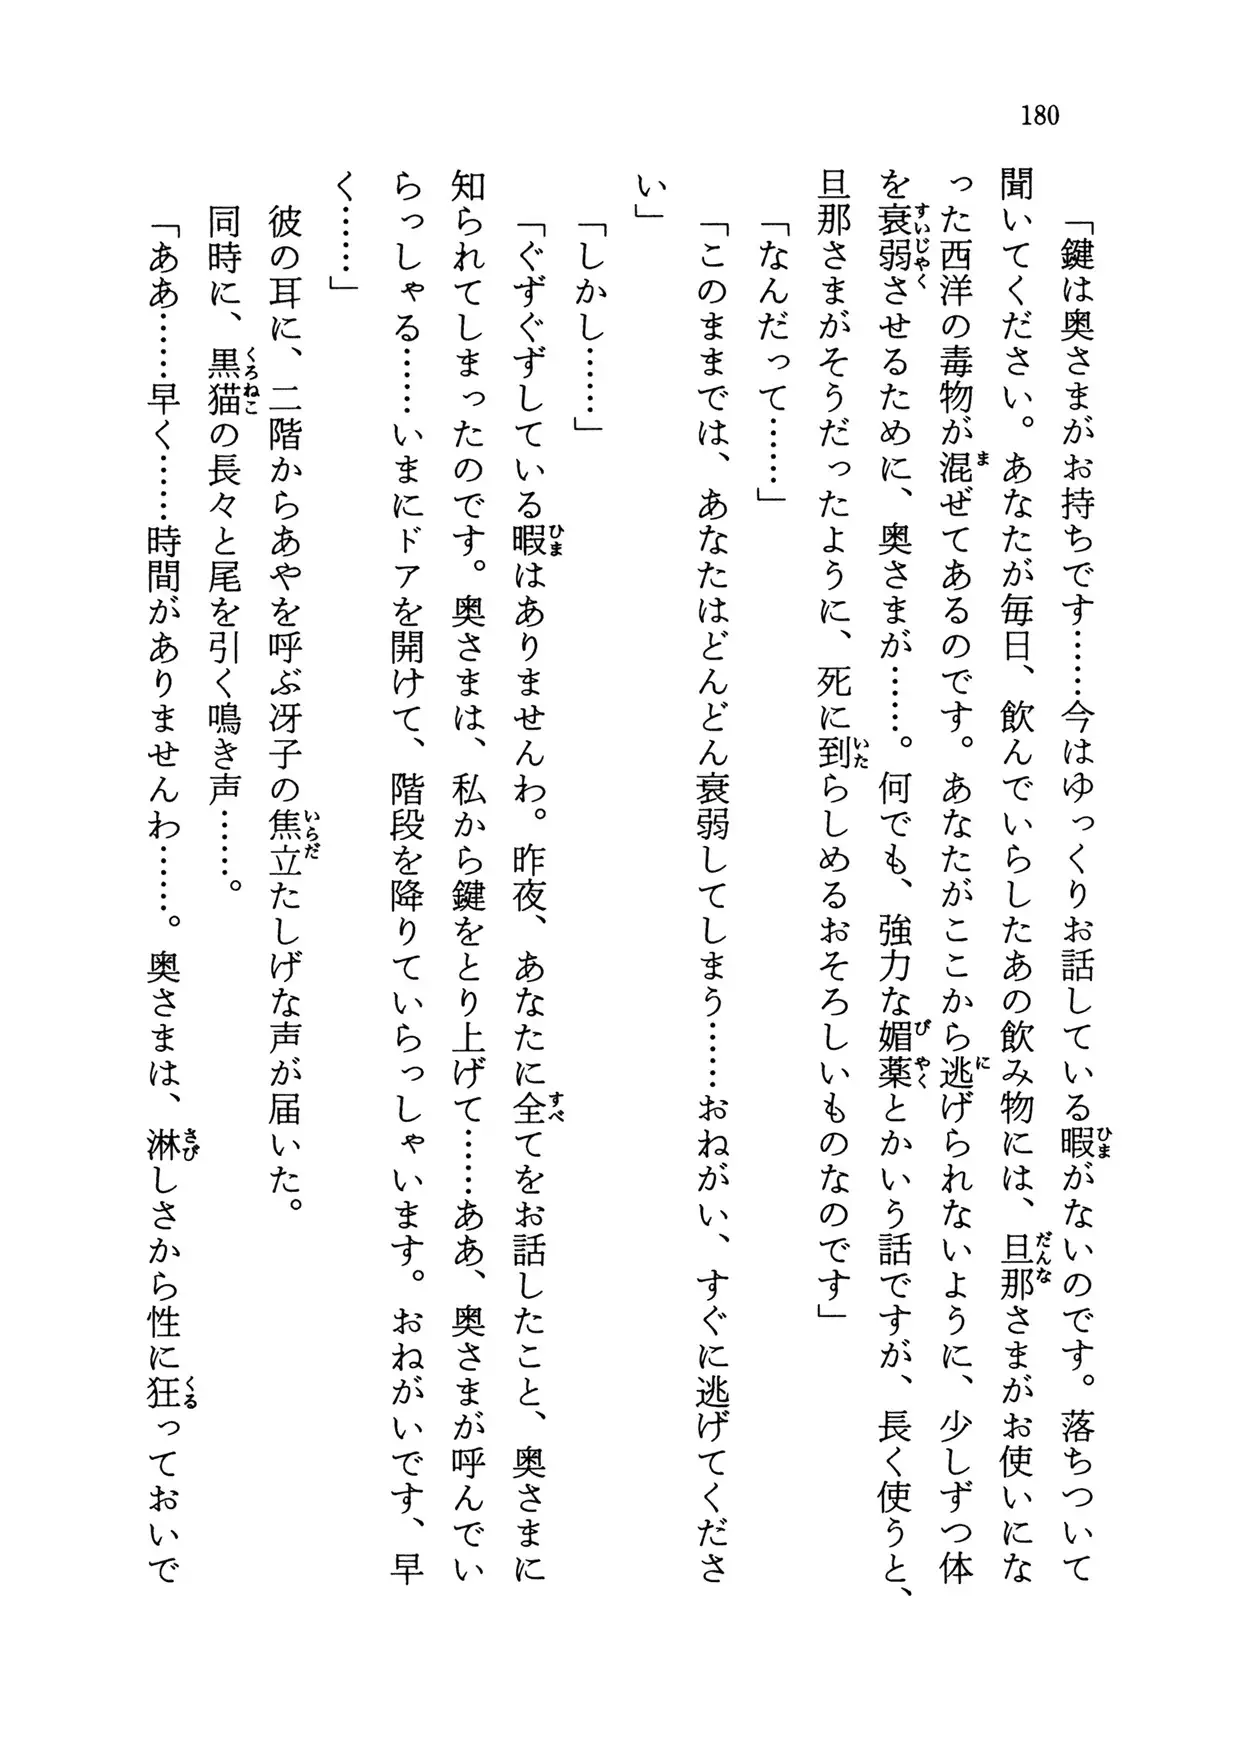 180
「鍵は奥さまがお持ちです……今はゆっくりお話している暇がないのです。落ちついて
聞いてください。あなたが毎日、飲んでいらしたあの飲み物には、旦那さまがお使いにな
った西洋の毒物が混ぜてあるのです。あなたがここから逃げられないように、少しずつ体
を衰弱させるために、奥さまが……。何でも、強力な媚薬とかいう話ですが、長く使うと、
旦那さまがそうだったように、死に到らしめるおそろしいものなのです」
「なんだって……」
「このままでは、あなたはどんどん衰弱してしまう……おねがい、すぐに逃げてくださ
い」
「しかし……」
「ぐずぐずしている暇はありませんわ。昨夜、あなたに全てをお話したこと、奥さまに
知られてしまったのです。奥さまは、私から鍵をとり上げて……ああ、奥さまが呼んでい
らっしゃる……いまにドアを開けて、階段を降りていらっしゃいます。おねがいです、早
く……」
彼の耳に、二階からあやを呼ぶ冴子の焦立たしげな声が届いた。
同時に、黒猫の長々と尾を引く鳴き声……。
「ああ……早く……時間がありませんわ……。奥さまは、淋しさから性に狂っておいで